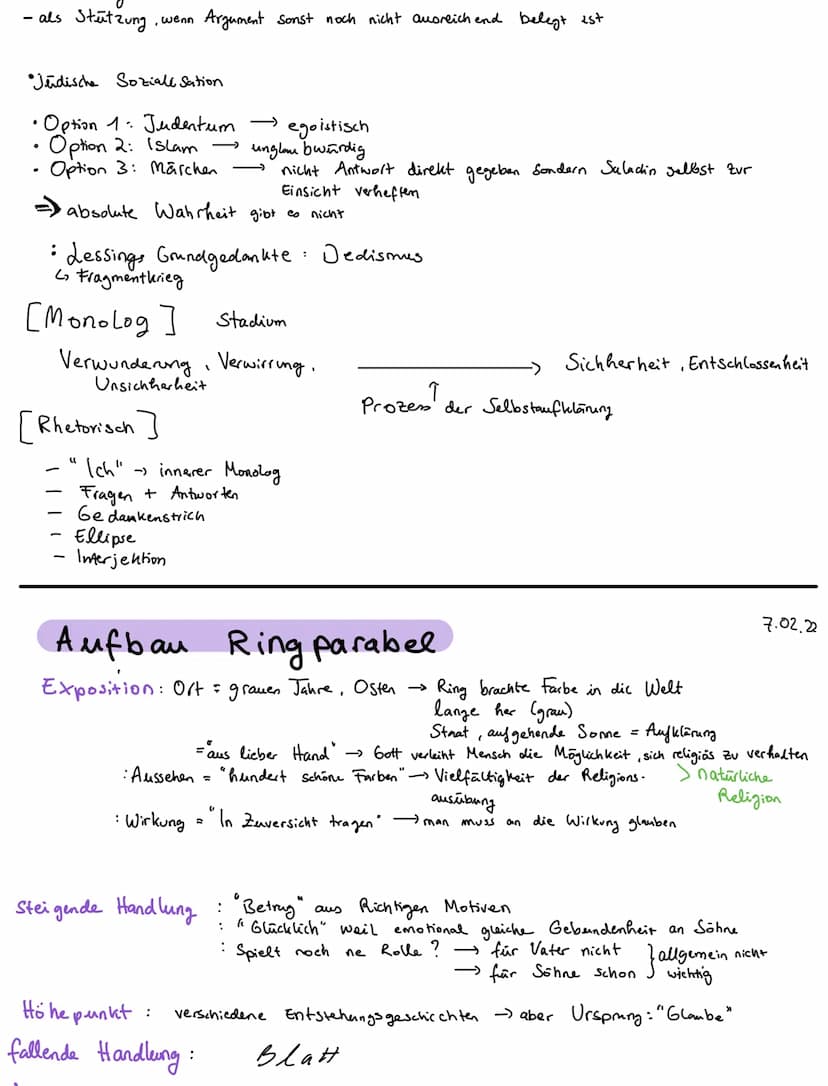 - als Stützung, wenn Argument sonst noch nicht ausreichend belegt ist
• Jüdische Sozialisation
• Option 1: Judentum → egoistisch
• Option 2: Islam → unglaubwürdig
• Option 3: Märchen → nicht Antwort direkt gegeben sondern Saladin selbst zur
Einsicht verhelfen
⇒ absolute Wahrheit gibt es nicht
: Lessings Grundgedankte: Dedismus
↳ Fragmentkrieg
[Monolog] Stadium
Verwunderung, Verwirrung, → Sichherheit, Entschlossenheit
Unsichherheit
↑
Prozess der Selbstaufklärung
[Rhetorisch]
- "Ich" → innerer Monolog
- Fragen + Antworten
- Gedankenstrich
- Ellipse
- Interjektion
7.02.22
Aufbau Ringparabel
Exposition: Ort = grauen Jahre, Osten → Ring brachte Farbe in die Welt
lange her (grau)
Staat, aufgehende Sonne = Aufklärung
= "aus lieber Hand" → Gott verleiht Mensch die Möglichkeit, sich religiös zu verhalten
: Aussehen = "hundert schöne Farben" → Vielfältigkeit der Religions- > natürliche
ausübung Religion
: Wirkung = "In Zuversicht tragen" → man muss an die Wirkung glauben
Steigende Handlung : "Betrug" aus Richtigen Motiven
: "Glücklich" weil emotional gleiche Gebundenheit an Söhne
: Spielt noch ne Rolle? → für Vater nicht } allgemein nicht
→ für Söhne schon } wichtig
Höhepunkt : verschiedene Entstehungsgeschichten → aber Ursprung: "Glaube"
fallende Handlung : Blatt